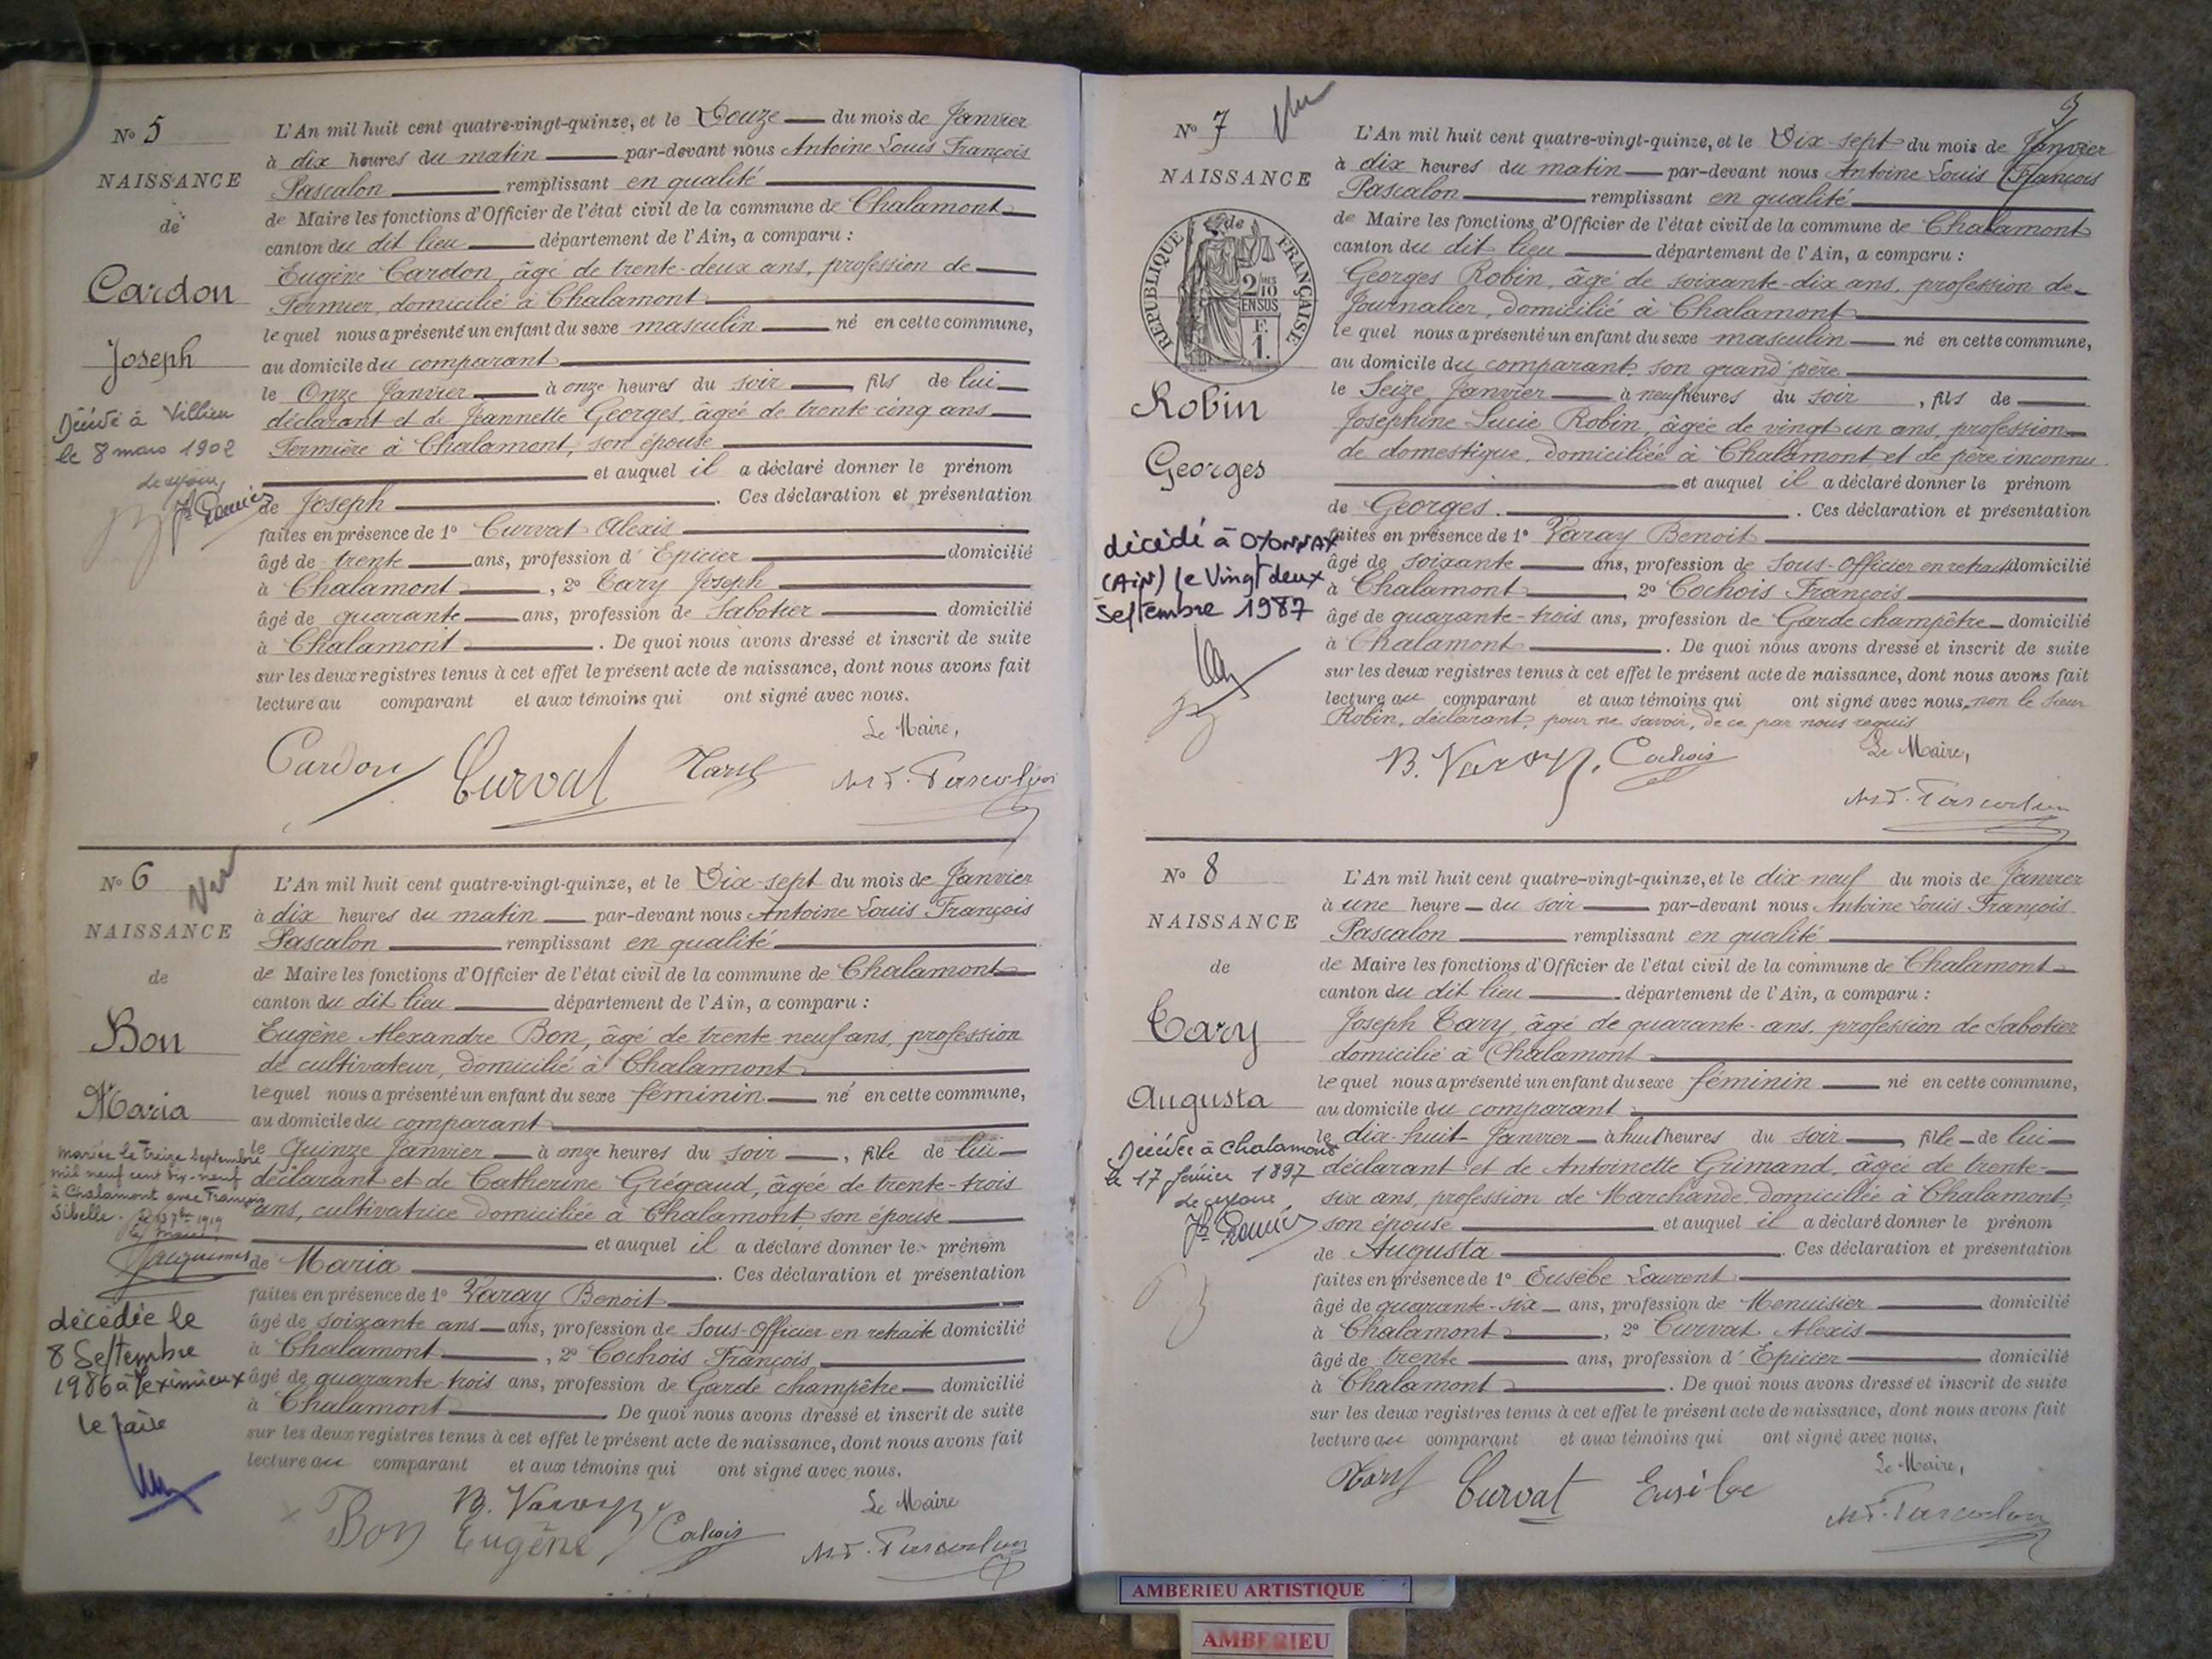 N° 5
NAISSANCE
de
Cardon
Joseph
Décédé à Villieu
le 8 mars 1902
L'An mil huit cent quatre-vingt-quinze, et le Douze du mois de Janvier
à dix heures du matin par-devant nous Antoine Louis François
Pascalon remplissant en qualité
de Maire les fonctions d'Officier de l'état civil de la commune de Chalamont
canton du dit lieu département de l'Ain, a comparu :
Eugène Cardon, âgé de trente-deux ans, profession de
Fermier, domicilié à Chalamont
lequel nous a présenté un enfant du sexe masculin né en cette commune,
au domicile du comparant
le Onze Janvier à onze heures du soir, fils de lui
déclarant et de Jeannette Georges, âgée de trente cinq ans
Fermière à Chalamont, son épouse
et auquel il a déclaré donner le prénom
de Joseph. Ces déclaration et présentation
faites en présence de 1° Curvat Alexis
âgé de trente ans, profession d'Epicier domicilié
à Chalamont, 2° Tary Joseph
âgé de quarante ans, profession de Sabotier domicilié
à Chalamont. De quoi nous avons dressé et inscrit de suite
sur les deux registres tenus à cet effet le présent acte de naissance, dont nous avons fait
lecture au comparant et aux témoins qui ont signé avec nous.
Le Maire,
Cardon Curvat Tary
N° 6
NAISSANCE
de
Bon
Maria
mariée le treize Septembre
mil neuf cent dix-neuf
à Chalamont avec François
Sibelle.
décédée le
8 Septembre
1986 à Peximieux
L'An mil huit cent quatre-vingt-quinze, et le Dix-sept du mois de Janvier
à dix heures du matin par-devant nous Antoine Louis François
Pascalon remplissant en qualité
de Maire les fonctions d'Officier de l'état civil de la commune de Chalamont
canton du dit lieu département de l'Ain, a comparu :
Eugène Alexandre Bon, âgé de trente neuf ans, profession
de cultivateur, domicilié à Chalamont
lequel nous a présenté un enfant du sexe féminin né en cette commune,
au domicile du comparant
le Quinze Janvier à onze heures du soir, fille de lui
déclarant et de Catherine Grégaud, âgée de trente-trois
ans, cultivatrice domiciliée à Chalamont son épouse
et auquel il a déclaré donner le prénom
de Maria. Ces déclaration et présentation
faites en présence de 1° Varay Benoit
âgé de soixante ans ans, profession de Sous-Officier en retraite domicilié
à Chalamont, 2° Cochois François
âgé de quarante trois ans, profession de Garde champêtre domicilié
à Chalamont De quoi nous avons dressé et inscrit de suite
sur les deux registres tenus à cet effet le présent acte de naissance, dont nous avons fait
lecture au comparant et aux témoins qui ont signé avec nous.
Le Maire
B. Varay
Bon Eugène Cochois
N° 7
NAISSANCE
de
RÉPUBLIQUE FRANÇAISE
2/10 EN SUS
F.
1.
Robin
Georges
décédé à OYONNAX
(AiN) le Vingt deux
Septembre 1987
L'An mil huit cent quatre-vingt-quinze, et le Dix-sept du mois de Janvier
à dix heures du matin par-devant nous Antoine Louis François
Pascalon remplissant en qualité
de Maire les fonctions d'Officier de l'état civil de la commune de Chalamont
canton du dit lieu département de l'Ain, a comparu :
Georges Robin, âgé de soixante-dix ans, profession de
Journalier, domicilié à Chalamont
lequel nous a présenté un enfant du sexe masculin né en cette commune,
au domicile du comparant, son grand père
le Seize Janvier à neuf heures du soir, fils de
Joséphine Lucie Robin, âgée de vingt un ans, profession
de domestique, domiciliée à Chalamont et de père inconnu
et auquel il a déclaré donner le prénom
de Georges. Ces déclaration et présentation
faites en présence de 1° Varay Benoit
âgé de soixante ans, profession de Sous-Officier en retraite domicilié
à Chalamont 2° Cochois François
âgé de quarante-trois ans, profession de Garde champêtre domicilié
à Chalamont. De quoi nous avons dressé et inscrit de suite
sur les deux registres tenus à cet effet le présent acte de naissance, dont nous avons fait
lecture au comparant et aux témoins qui ont signé avec nous, non le sieur
Robin, déclarant, pour ne savoir, de ce par nous requis
Le Maire,
B. Varay. Cochois
N° 8
NAISSANCE
de
Tary
Augusta
Décédée à Chalamont
le 17 février 1897
L'An mil huit cent quatre-vingt-quinze, et le dix-neuf du mois de Janvier
à une heure du soir par-devant nous Antoine Louis François
Pascalon remplissant en qualité
de Maire les fonctions d'Officier de l'état civil de la commune de Chalamont
canton du dit lieu département de l'Ain, a comparu :
Joseph Tary, âgé de quarante-ans, profession de Sabotier
domicilié à Chalamont
lequel nous a présenté un enfant du sexe féminin né en cette commune,
au domicile du comparant
le dix-huit Janvier à huit heures du soir, fille de lui
déclarant et de Antoinette Grimand, âgée de trente-
six ans, profession de Marchande, domiciliée à Chalamont,
son épouse et auquel il a déclaré donner le prénom
de Augusta. Ces déclaration et présentation
faites en présence de 1° Eusèbe Laurent
âgé de quarante-six ans, profession de Menuisier domicilié
à Chalamont, 2° Curvat Alexis
âgé de trente ans, profession d'Epicier domicilié
à Chalamont. De quoi nous avons dressé et inscrit de suite
sur les deux registres tenus à cet effet le présent acte de naissance, dont nous avons fait
lecture au comparant et aux témoins qui ont signé avec nous.
Le Maire,
Tary Curvat Eusèbe
AMBERIEU ARTISTIQUE
AMBERIEU